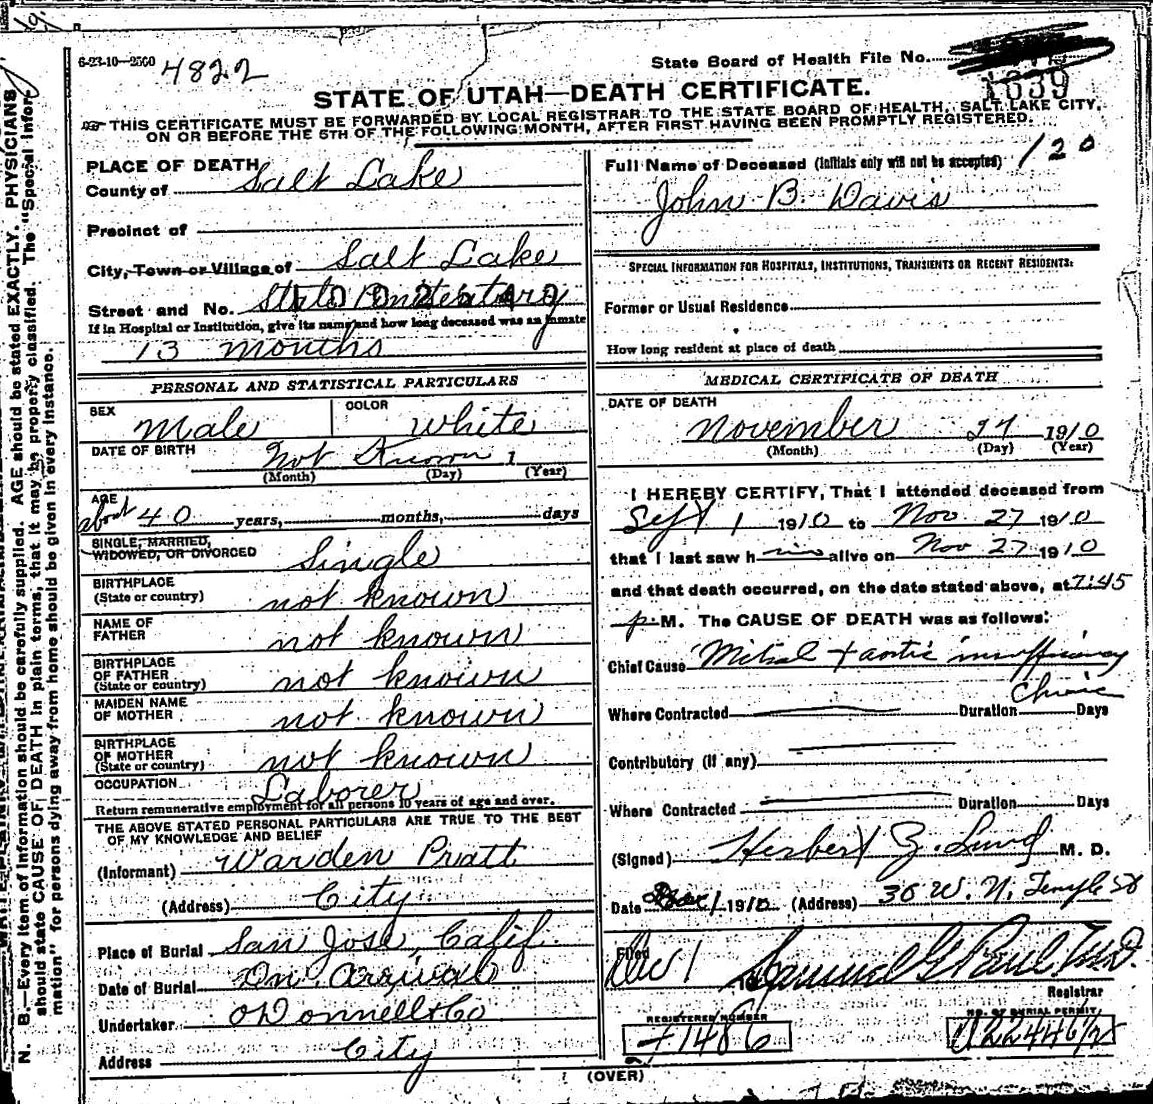 6-23-10-2500 4822
State Board of Health File No.
1639
STATE OF UTAH—DEATH CERTIFICATE.
THIS CERTIFICATE MUST BE FORWARDED BY LOCAL REGISTRAR TO THE STATE BOARD OF HEALTH, SALT LAKE CITY,
ON OR BEFORE THE 5TH OF THE FOLLOWING MONTH, AFTER FIRST HAVING BEEN PROMPTLY REGISTERED.
PLACE OF DEATH
County of Salt Lake
Precinct of
City, Town or Village of Salt Lake
Street and No. State Penitentiary
If in Hospital or Institution, give its name and how long deceased was an inmate
13 months
PERSONAL AND STATISTICAL PARTICULARS
SEX Male COLOR White
DATE OF BIRTH Not Known 1
(Month) (Day) (Year)
AGE about 40 years, months, days
SINGLE, MARRIED,
WIDOWED, OR DIVORCED Single
BIRTHPLACE
(State or country) not known
NAME OF
FATHER not known
BIRTHPLACE
OF FATHER
(State or country) not known
MAIDEN NAME
OF MOTHER not known
BIRTHPLACE
OF MOTHER
(State or country) not known
OCCUPATION Laborer
Return remunerative employment for all persons 10 years of age and over.
THE ABOVE STATED PERSONAL PARTICULARS ARE TRUE TO THE BEST
OF MY KNOWLEDGE AND BELIEF
(Informant) Warden Pratt
(Address) City
Place of Burial San Jose, Calif.
Date of Burial On Arrival
Undertaker O'Donnell & Co
Address City
Full Name of Deceased (Initials only will not be accepted) 120
John B. Davis
SPECIAL INFORMATION FOR HOSPITALS, INSTITUTIONS, TRANSIENTS OR RECENT RESIDENTS:
Former or Usual Residence
How long resident at place of death
MEDICAL CERTIFICATE OF DEATH
DATE OF DEATH
November 27 1910
(Month) (Day) (Year)
I HEREBY CERTIFY, That I attended deceased from
Sept 1 1910 to Nov 27 1910
that I last saw him alive on Nov 27 1910
and that death occurred, on the date stated above, at 7:45
p. M. The CAUSE OF DEATH was as follows:
Chief Cause Mitral + aortic insufficiency
Where Contracted Duration Days
Contributory (if any)
Where Contracted Duration Days
(Signed) Herbert Z. Lund M. D.
Date Dec 1 1910 (Address) 36 W. N. Temple St
Filed Dec 1 Samuel G Paul M.D.
Registrar
REGISTERED NUMBER
NO. OF BURIAL PERMIT
(OVER)
N. B.—Every item of information should be carefully supplied. AGE should be stated EXACTLY. PHYSICIANS
should state CAUSE OF DEATH in plain terms, that it may be properly classified. The "Special Infor-
mation" for persons dying away from home should be given in every instance.